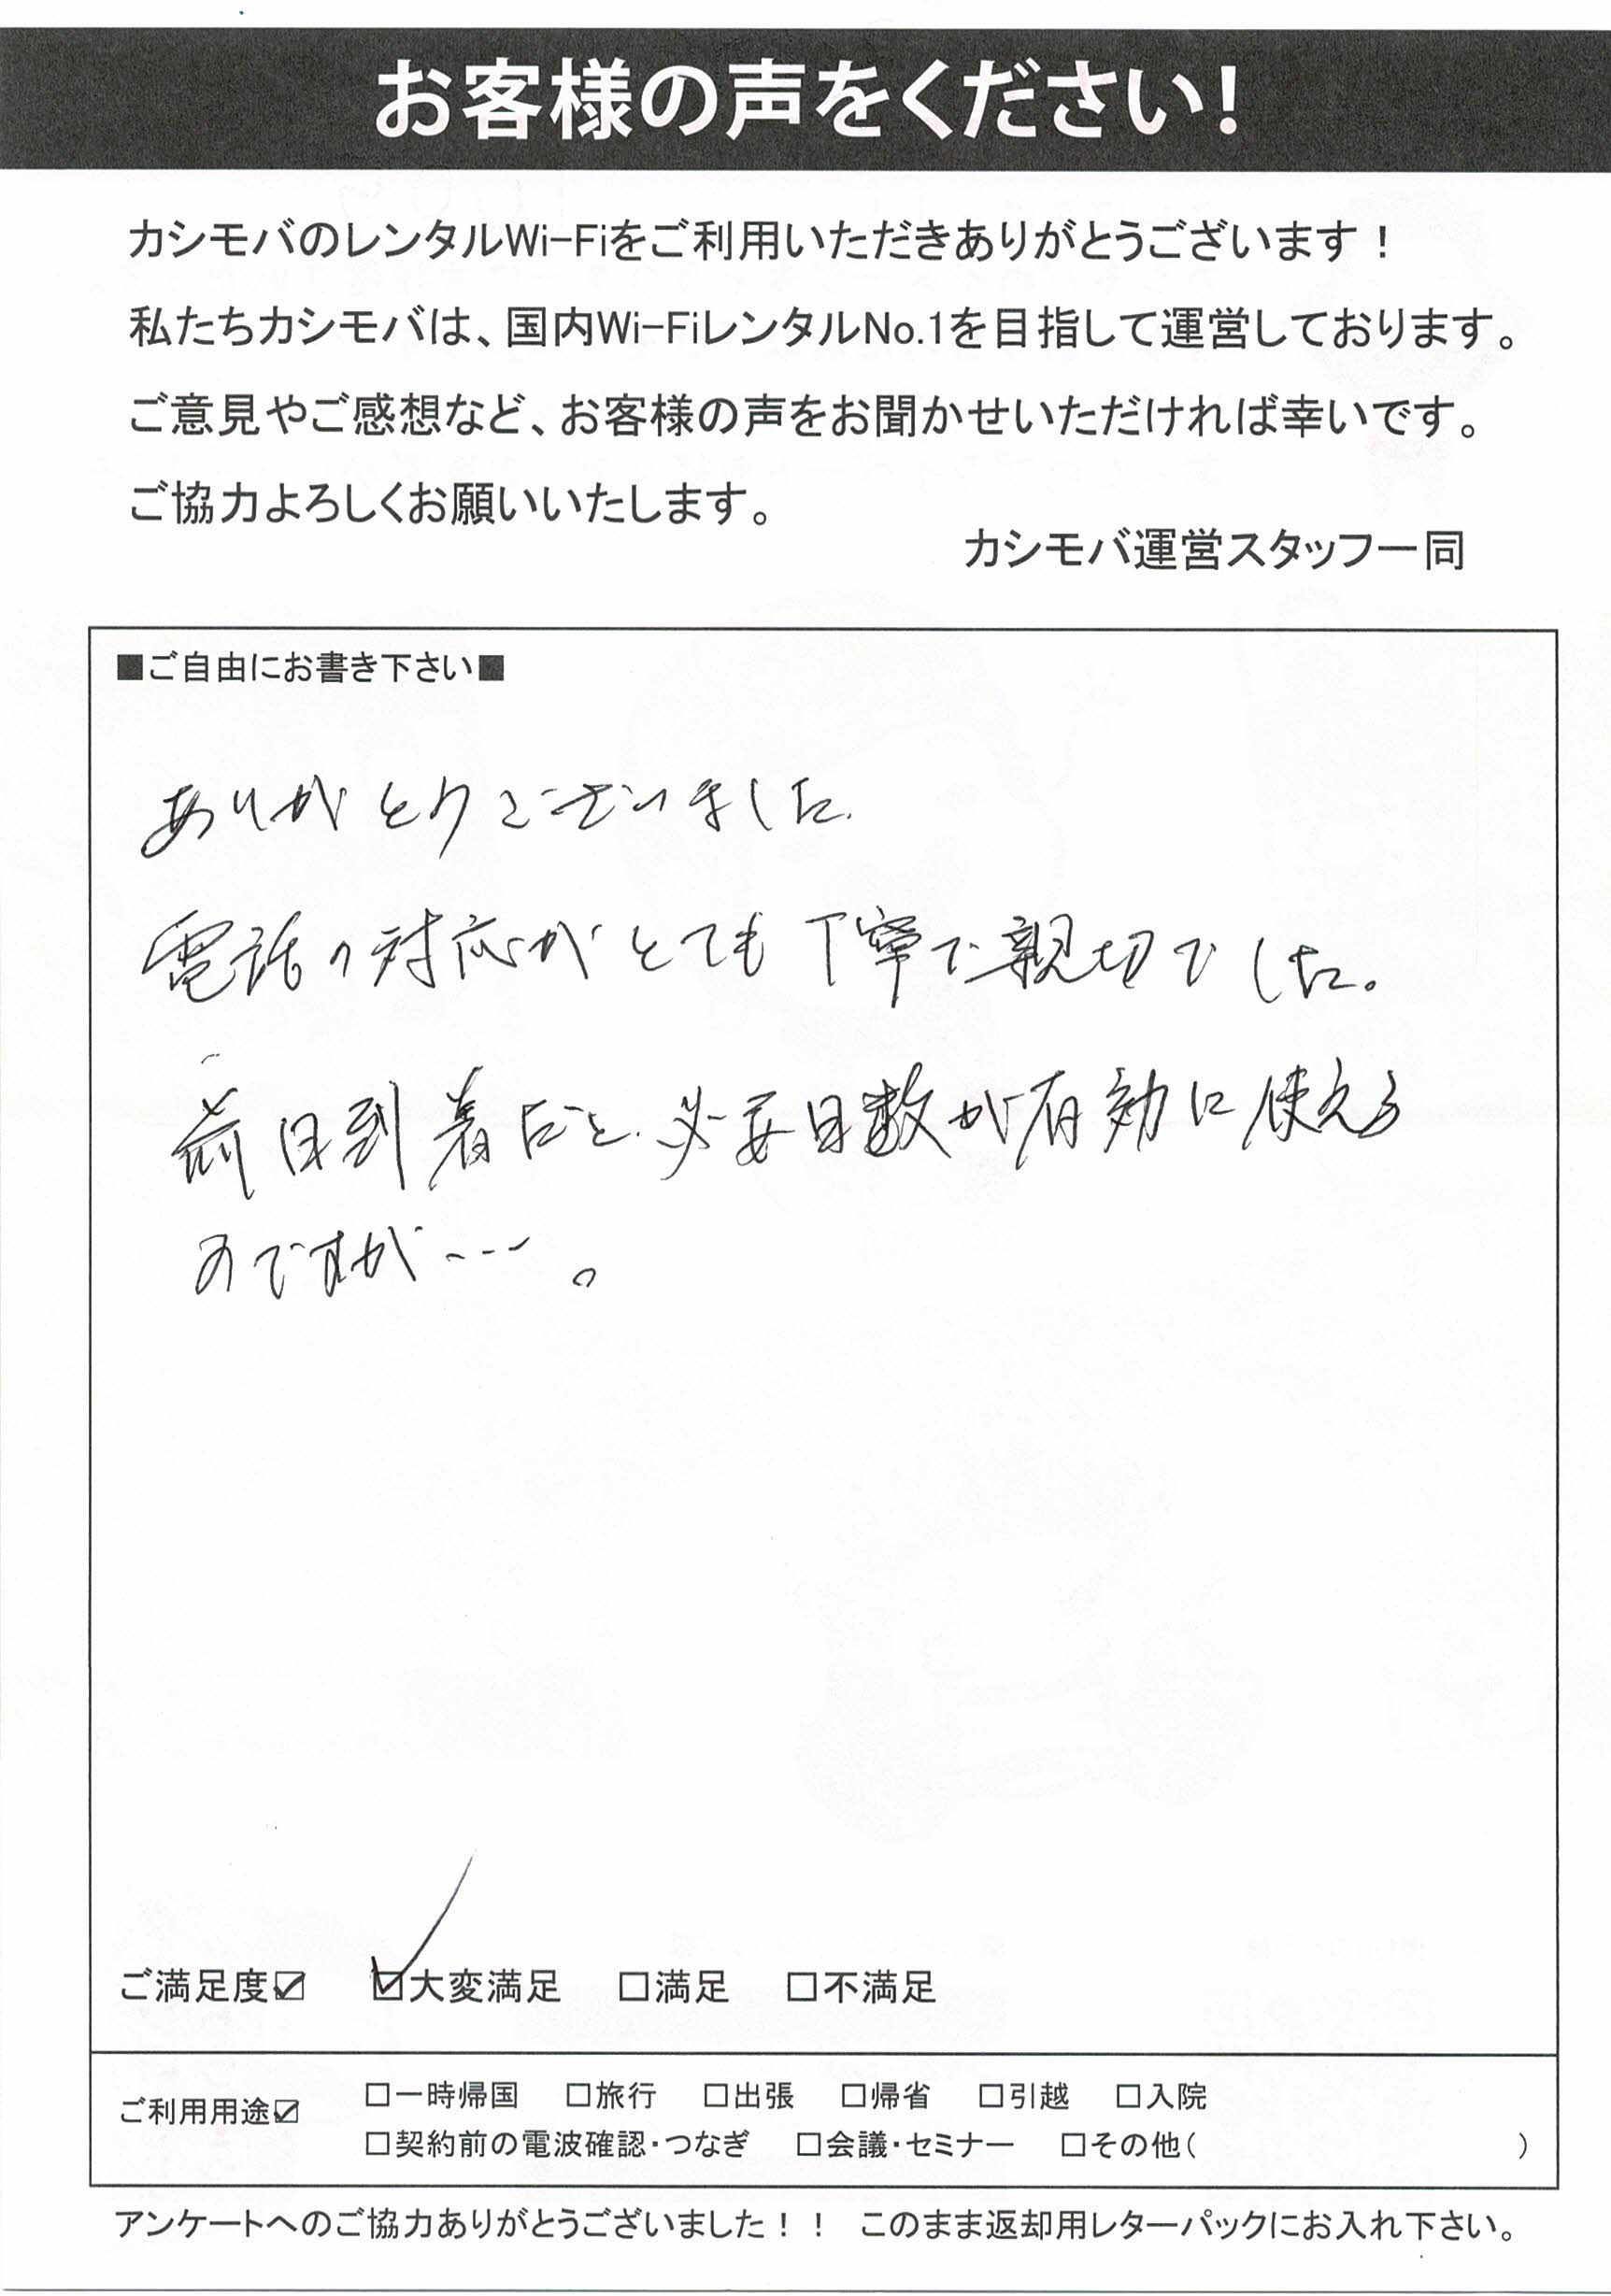 お客様の声をください!
カシモバのレンタルWi-Fiをご利用いただきありがとうございます！
私たちカシモバは、国内Wi-FiレンタルNo.1を目指して運営しております。
ご意見やご感想など、お客様の声をお聞かせいただければ幸いです。
ご協力よろしくお願いいたします。
カシモバ運営スタッフ一同
■ご自由にお書き下さい■
ありがとうございました.
電話の対応がとても丁寧で親切でした。
前日到着だと、必要日数が有効に使える
のですが---。
ご満足度☑ ☑大変満足 □満足 □不満足
ご利用用途☑ □一時帰国 □旅行 □出張 □帰省 □引越 □入院
□契約前の電波確認・つなぎ □会議・セミナー □その他( )
アンケートへのご協力ありがとうございました！！ このまま返却用レターパックにお入れ下さい。